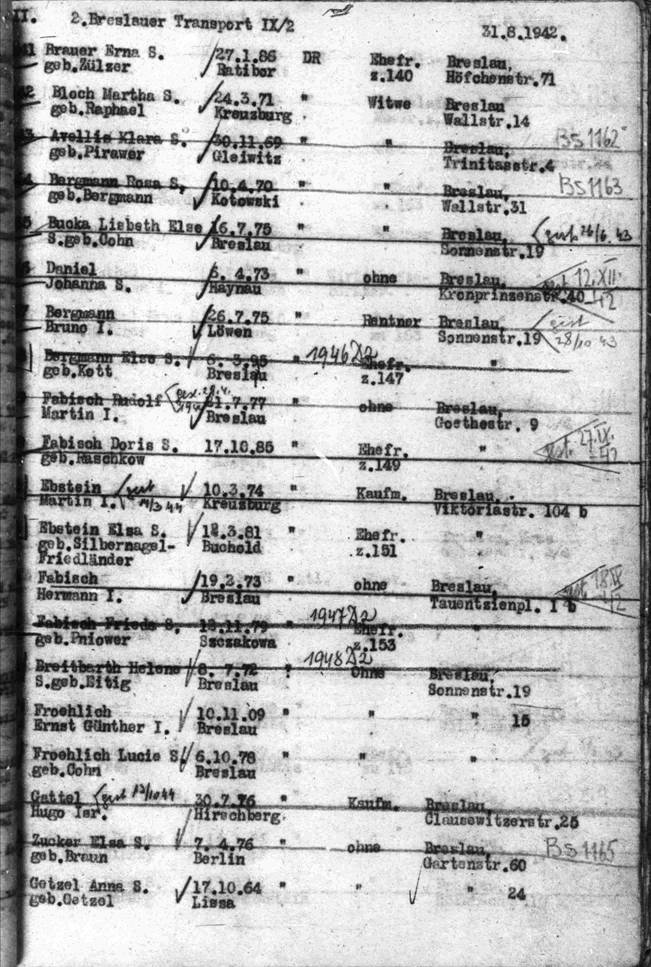 II. 2.Breslauer Transport IX/2 31.8.1942.
Brauer Erna S. 27.1.86 DR Ehefr. Breslau,
geb.Zülzer Ratibor z.140 Höfchenstr.71
Bloch Martha S. 24.3.71 " Witwe Breslau
geb.Raphael Kreuzburg Wallstr.14
Avellis Klara S. 30.11.69 " " Breslau, Bs1162
geb.Pirawer Gleiwitz Trinitasstr.4
Bergmann Rosa S. 10.4.70 " " Breslau, Bs1163
geb.Bergmann Kotowski Wallstr.31
Bucka Lisbeth Else 16.7.75 " " Breslau, gest. 26/6. 43
S.geb.Cohn Breslau Sonnenstr.19
Daniel 5.4.73 " ohne Breslau, gest. 12.XII.
Johanna S. Haynau Kronprinzenstr.40 42
Bergmann 26.7.75 " Rentner Breslau, gest
Bruno I. Löwen Sonnenstr.19 28/10 43
Bergmann Else S. 6. 3.95 " 1946 Dz Ehefr. "
geb.Kott Breslau z.147
Fabisch Rudolf 21.7.77 " ohne Breslau,
Martin I. Breslau Goethestr. 9
Fabisch Doris S. 17.10.85 " Ehefr. " gest. 27.IX.
geb.Raschkow z.149 42
Ebstein gest 10.3.74 " Kaufm. Breslau,
Martin I. 14/3 44 Kreuzburg Viktoriastr. 104 b
Ebstein Elsa S. 12.3.81 " Ehefr. "
geb.Silbernagel- Buchold z.151
Friedländer
Fabisch 19.2.73 " ohne Breslau, gest. 18.IX
Hermann I. Breslau Tauentzienpl. I b 42
Fabisch Frieda S. 18.11.79 " 1947 Dz Ehefr. "
geb.Pniower Szczakowa z.153
Breitbarth Helene 8. 7.72 " 1948 Dz Ohne Breslau,
S.geb.Eitig Breslau Sonnenstr.19
Froehlich 10.11.09 " " " 15
Ernst Günther I. Breslau
Froehlich Lucie S. 6.10.78 " " "
geb.Cohn Breslau
Gattel gest 13/10 44 30.7.76 " Kaufm. Breslau,
Hugo Isr. Hirschberg Clausewitzerstr.25
Zucker Elsa S. 7. 4.76 " ohne Breslau, Bs1165
geb.Braun Berlin Gartenstr.60
Getzel Anna S. 17.10.64 " " " 24
geb.Getzel Lissa